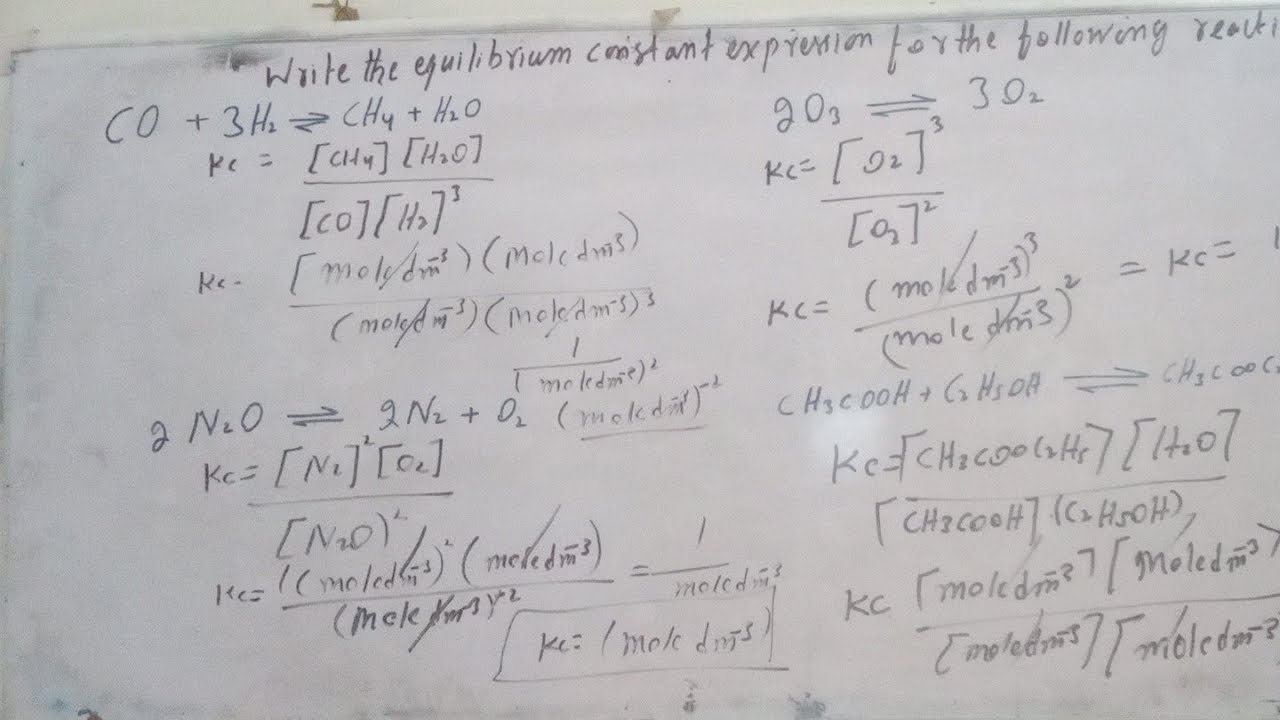 Write the equilibrium constant expression for the following reacti
CO + 3H₂ ⇌ CH₄ + H₂O
Kc = [CH₄] [H₂O]
[CO] [H₂]³
Kc - [mole dm⁻³) (mole dm⁻³)
(mole dm⁻³) (mole dm⁻³)³
1
(mole dm⁻³)²
(mole dm⁻³)⁻²
2 N₂O ⇌ 2N₂ + O₂
Kc = [N₂]² [O₂]
[N₂O)²
Kc = ((mole dm⁻³)² (mole dm⁻³) = 1
(mole dm⁻³)⁺² mole dm⁻³
Kc = (mole dm⁻³)
2O₃ ⇌ 3O₂
Kc = [O₂]³
[O₃]²
Kc = (mole dm⁻³)³ = Kc =
(mole dm⁻³)²
CH₃COOH + C₂H₅OH ⇌ CH₃COOC₂
Kc = [CH₃COOC₂H₅] [H₂O]
[CH₃COOH] (C₂H₅OH)
Kc [mole dm⁻³] [mole dm⁻³]
[mole dm⁻³] [mole dm⁻³